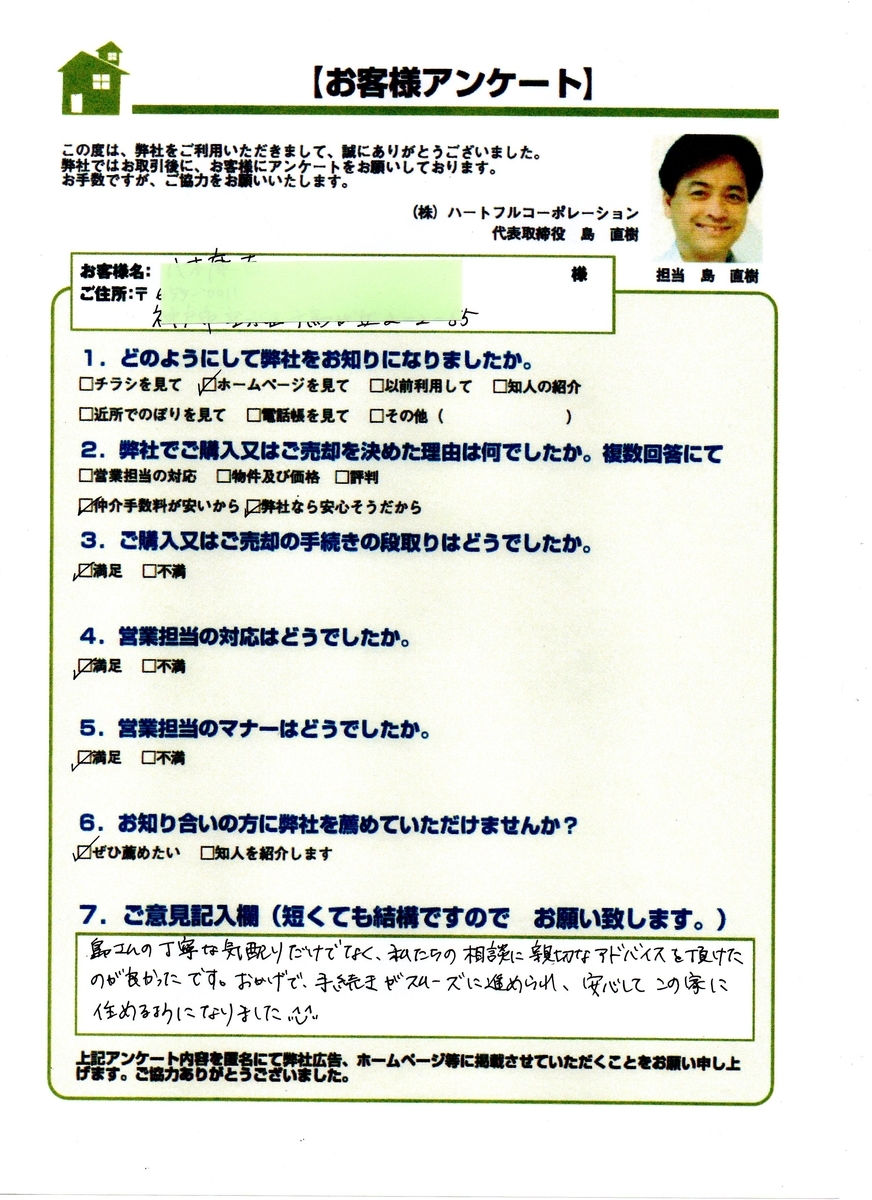 【お客様アンケート】
この度は、弊社をご利用いただきまして、誠にありがとうございました。
弊社ではお取引後に、お客様にアンケートをお願いしております。
お手数ですが、ご協力をお願いいたします。
（株）ハートフルコーポレーション
代表取締役 島 直樹
担当 島 直樹
お客様名： 様
ご住所：〒
1．どのようにして弊社をお知りになりましたか。
□チラシを見て ☑ホームページを見て □以前利用して □知人の紹介
□近所でのぼりを見て □電話帳を見て □その他（ ）
2．弊社でご購入又はご売却を決めた理由は何でしたか。複数回答にて
□営業担当の対応 □物件及び価格 □評判
☑仲介手数料が安いから ☑弊社なら安心そうだから
3．ご購入又はご売却の手続きの段取りはどうでしたか。
☑満足 □不満
4．営業担当の対応はどうでしたか。
☑満足 □不満
5．営業担当のマナーはどうでしたか。
☑満足 □不満
6．お知り合いの方に弊社を薦めていただけませんか？
☑ぜひ薦めたい □知人を紹介します
7．ご意見記入欄（短くても結構ですので お願い致します。）
島さんの丁寧な気配りだけでなく、私たちの相談に親切なアドバイスを頂けた
のが良かったです。おかげで、手続きがスムーズに進められ、安心してこの家に
住めるようになりました
上記アンケート内容を匿名にて弊社広告、ホームページ等に掲載させていただくことをお願い申し上
げます。ご協力ありがとうございました。